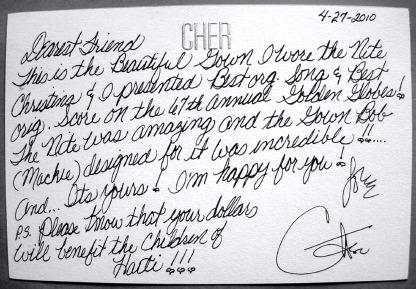 4-27-2010
CHER
Dearest Friend
This is the Beautiful Gown I wore the Nite
Christina & I presented Best org. Song & Best
orig. Score on the 67th annual Golden Globes!
The Nite was amazing and the Gown Bob
(Mackie) designed for it was incredible!!....
And... Its yours! I'm happy for you!
Love
P.S. Please know that your dollars
will benefit the Children of
Haiti!!!
Cher